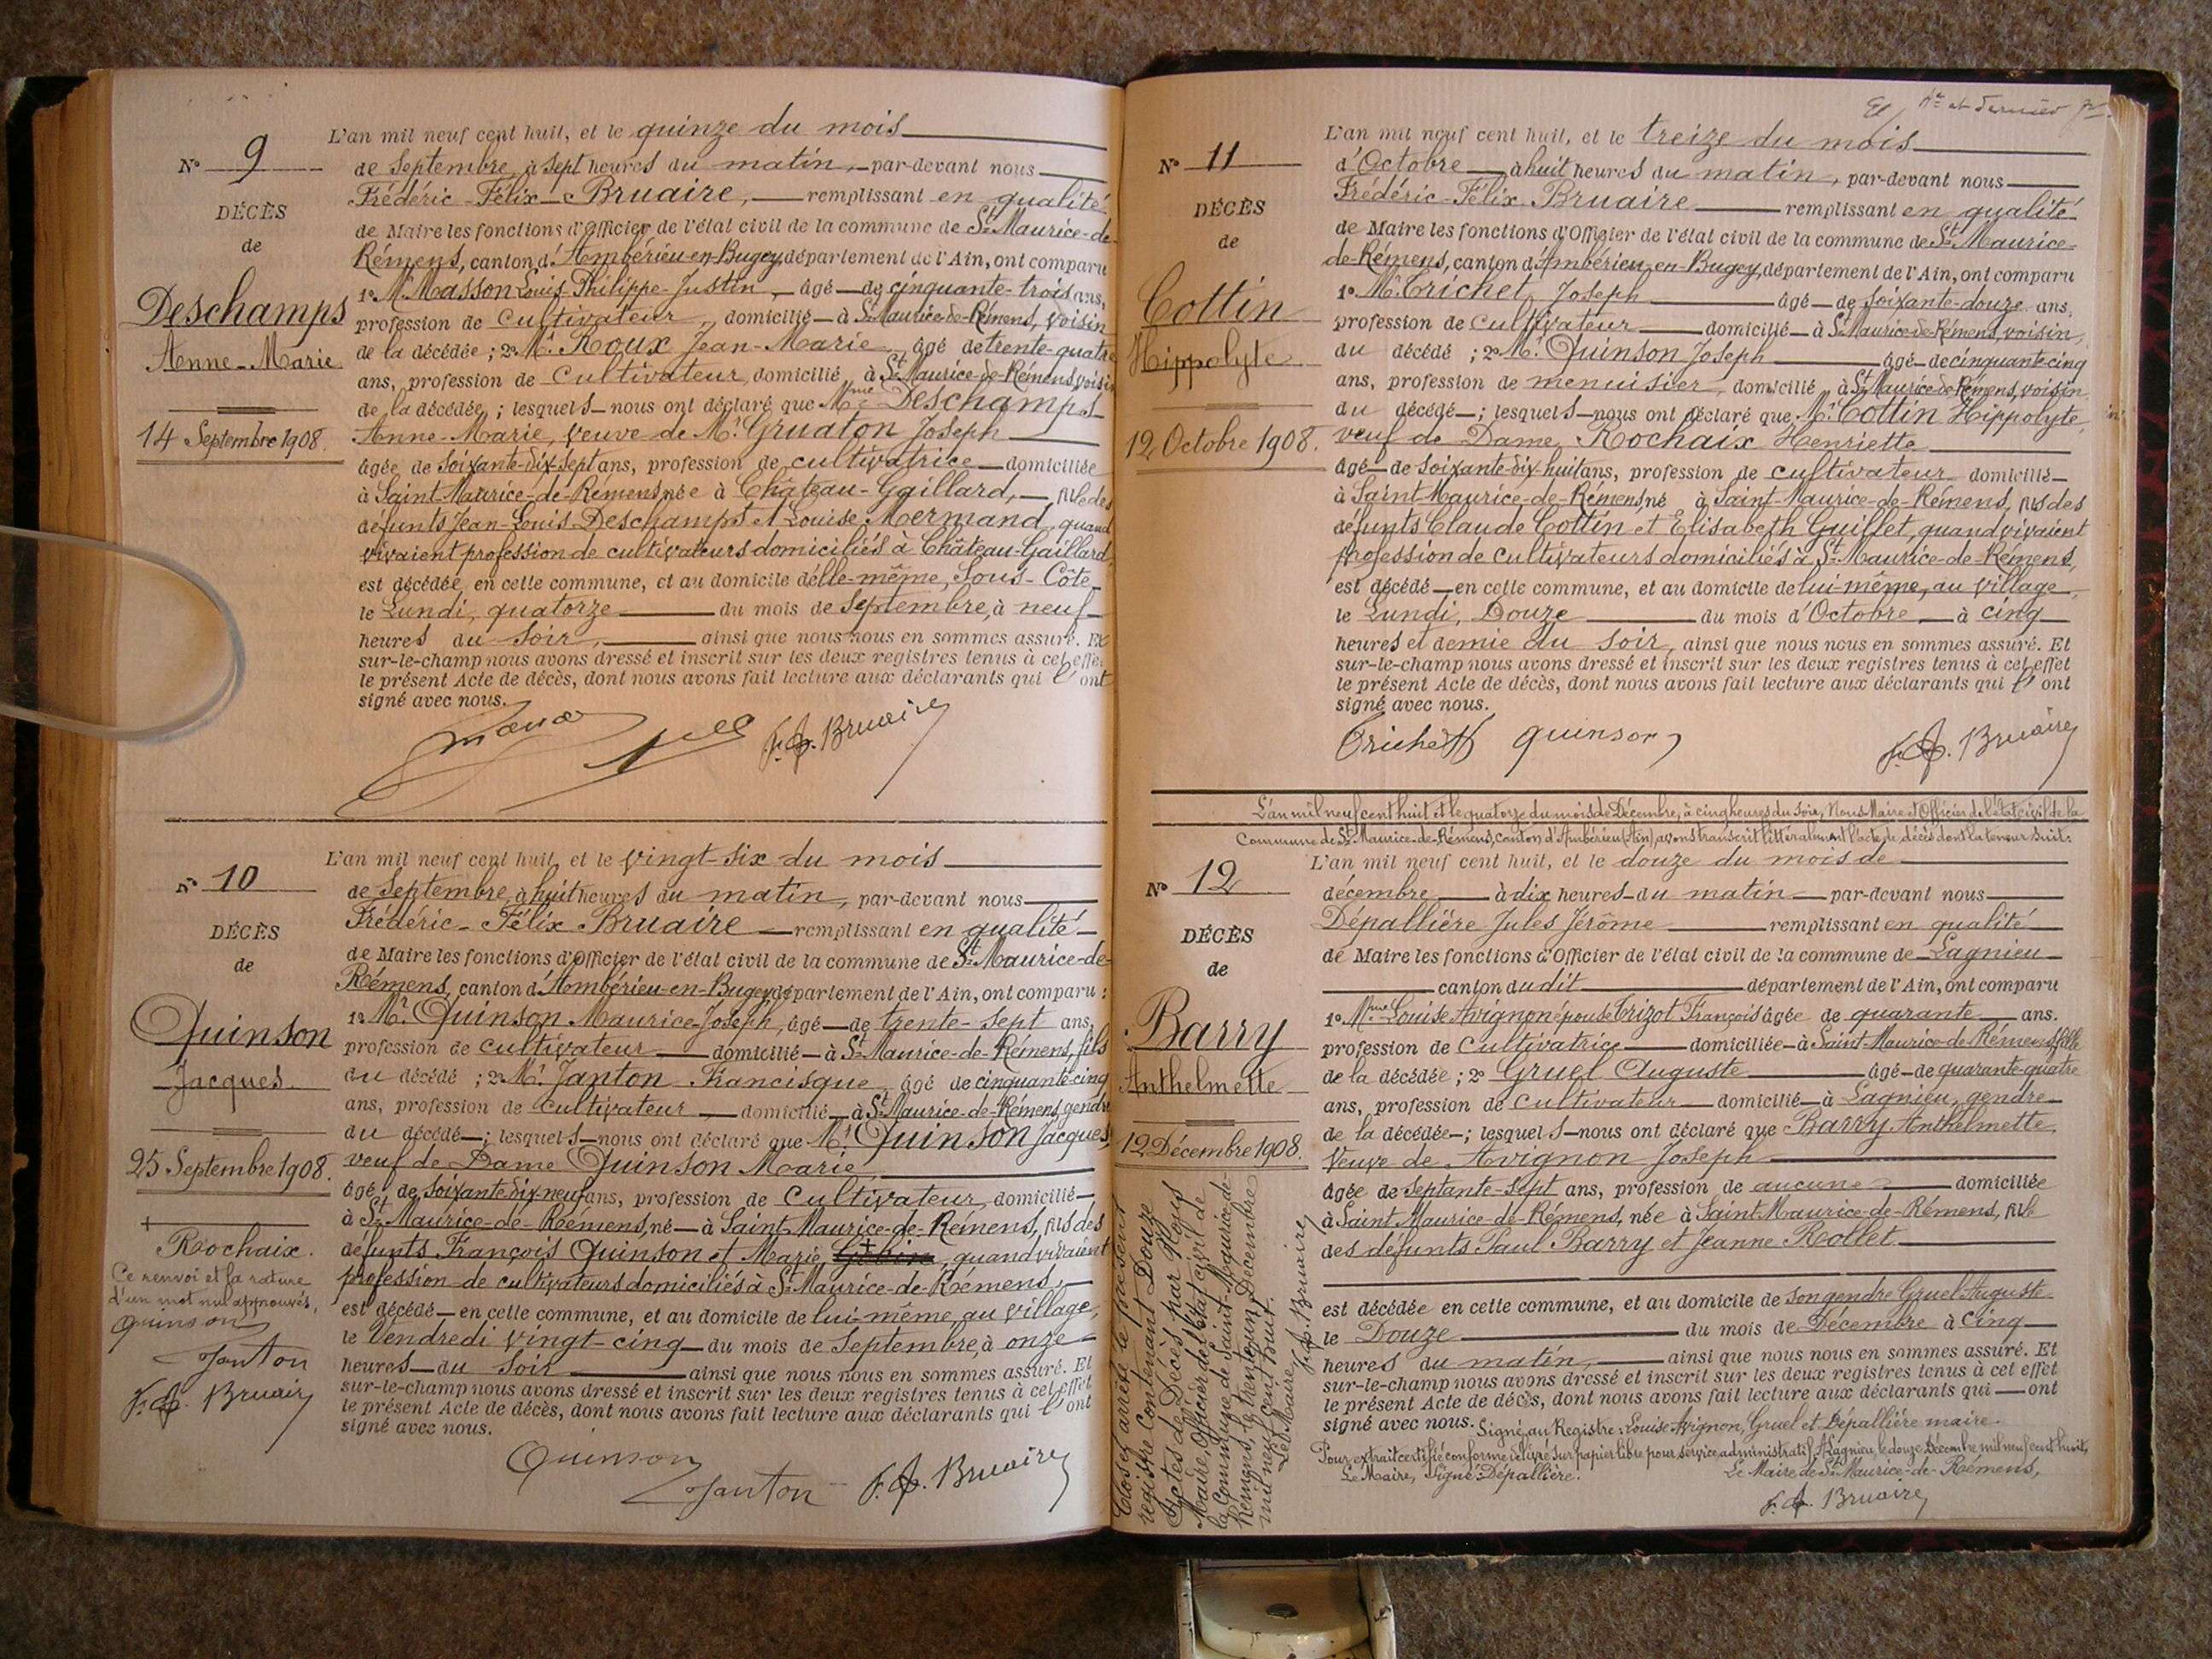 N° 9
DÉCÈS
de
Deschamps
Anne-Marie
14 Septembre 1908.
L'an mil neuf cent huit, et le quinze du mois
de Septembre, à sept heures du matin, par-devant nous
Frédéric-Félix Bruaire, remplissant en qualité
de Maire les fonctions d'Officier de l'état civil de la commune de St Maurice-de-
Rémens, canton d'Ambérieu-en-Bugey, département de l'Ain, ont comparu
1° Mr Masson Louis-Philippe-Justin, âgé de cinquante-trois ans,
profession de Cultivateur, domicilié à St Maurice-de-Rémens, voisin
de la décédée ; 2° Mr Roux Jean-Marie, âgé de trente-quatre
ans, profession de Cultivateur, domicilié à St Maurice-de-Rémens, voisin
de la décédée ; lesquels nous ont déclaré que Mme Deschamps
Anne-Marie, Veuve de Mr Gruaton Joseph
âgée de soixante-dix-sept ans, profession de cultivatrice domiciliée
à Saint-Maurice-de-Rémens née à Château-Gaillard, fille des
défunts Jean-Louis Deschamps et Louise Mermand, quand
vivaient profession de cultivateurs domiciliés à Château-Gaillard,
est décédée en cette commune, et au domicile d'elle-même, Sous-Côte
le Lundi, quatorze du mois de Septembre, à neuf
heures du soir, ainsi que nous nous en sommes assuré. Et
sur-le-champ nous avons dressé et inscrit sur les deux registres tenus à cet effet
le présent Acte de décès, dont nous avons fait lecture aux déclarants qui l'ont
signé avec nous.
F. F. Bruaire
N° 10
DÉCÈS
de
Quinson
Jacques
25 Septembre 1908.
Rochaix.
Ce renvoi et la rature
d'un mot nul approuvés,
Quinson
Janton
F. F. Bruaire
L'an mil neuf cent huit, et le vingt-six du mois
de Septembre, à huit heures du matin, par-devant nous
Frédéric-Félix Bruaire remplissant en qualité
de Maire les fonctions d'Officier de l'état civil de la commune de St Maurice-de-
Rémens, canton d'Ambérieu-en-Bugey, département de l'Ain, ont comparu :
1° Mr Quinson Maurice-Joseph, âgé de trente-sept ans,
profession de cultivateur domicilié à St Maurice-de-Rémens, fils
du décédé ; 2° Mr Janton Francisque, âgé de cinquante-cinq
ans, profession de cultivateur domicilié à St Maurice-de-Rémens, gendre
du décédé ; lesquels nous ont déclaré que Mr Quinson Jacques,
veuf de Dame Quinson Marie
âgé de soixante-dix-neuf ans, profession de Cultivateur, domicilié
à St Maurice-de-Rémens, né à Saint-Maurice-de-Rémens, fils des
défunts François Quinson et Marie, quand vivaient
profession de cultivateurs domiciliés à St Maurice-de-Rémens,
est décédé en cette commune, et au domicile de lui-même, au village,
le Vendredi vingt-cinq du mois de Septembre, à onze
heures du soir ainsi que nous nous en sommes assuré. Et
sur-le-champ nous avons dressé et inscrit sur les deux registres tenus à cet effet
le présent Acte de décès, dont nous avons fait lecture aux déclarants qui l'ont
signé avec nous.
Quinson
Janton F. F. Bruaire
et dernier
N° 11
DÉCÈS
de
Cottin
Hippolyte
12 Octobre 1908.
L'an mil neuf cent huit, et le treize du mois
d'Octobre à huit heures du matin, par-devant nous
Frédéric-Félix Bruaire remplissant en qualité
de Maire les fonctions d'Officier de l'état civil de la commune de St Maurice-
de-Rémens, canton d'Ambérieu-en-Bugey, département de l'Ain, ont comparu
1° Mr Trichet Joseph âgé de soixante-douze ans,
profession de cultivateur domicilié à St Maurice-de-Rémens, voisin
du décédé ; 2° Mr Quinson Joseph âgé de cinquante-cinq
ans, profession de menuisier, domicilié à St Maurice-de-Rémens, voisin
du décédé ; lesquels nous ont déclaré que Mr Cottin Hippolyte,
veuf de Dame Rochaix Henriette
âgé de soixante-dix-huit ans, profession de cultivateur domicilié
à Saint-Maurice-de-Rémens né à Saint-Maurice-de-Rémens, fils des
défunts Claude Cottin et Elisabeth Guillet, quand vivaient
profession de cultivateurs domiciliés à St Maurice-de-Rémens,
est décédé en cette commune, et au domicile de lui-même, au village
le Lundi, Douze du mois d'Octobre à cinq
heures et demie du soir, ainsi que nous nous en sommes assuré. Et
sur-le-champ nous avons dressé et inscrit sur les deux registres tenus à cet effet
le présent Acte de décès, dont nous avons fait lecture aux déclarants qui l'ont
signé avec nous.
Trichet Quinson F. F. Bruaire
L'an mil neuf cent huit et le quatorze du mois de Décembre, à cinq heures du soir, Nous Maire et Officier de l'état civil de la
Commune de St Maurice-de-Rémens, canton d'Ambérieu (Ain) avons transcrit littéralement l'acte de décès dont la teneur suit:
N° 12
DÉCÈS
de
Barry
Anthelmette
12 Décembre 1908.
L'an mil neuf cent huit, et le douze du mois de
décembre à dix heures du matin par-devant nous
Dépallière Jules Jérôme remplissant en qualité
de Maire les fonctions d'Officier de l'état civil de la commune de Lagnieu
canton dudit département de l'Ain, ont comparu
1° Mme Louise Avignon épouse Trizot François âgée de quarante ans.
profession de Cultivatrice domiciliée à Saint-Maurice-de-Rémens, fille
de la décédée ; 2° Gruel Auguste âgé de quarante-quatre
ans, profession de cultivateur domicilié à Lagnieu, gendre
de la décédée ; lesquels nous ont déclaré que Barry Anthelmette
Veuve de Avignon Joseph
âgée de septante-sept ans, profession de aucune domiciliée
à Saint-Maurice-de-Rémens, née à Saint-Maurice-de-Rémens, fille
des défunts Paul Barry et Jeanne Rollet
est décédée en cette commune, et au domicile de son gendre Gruel Auguste
le Douze du mois de Décembre à cinq
heures du matin, ainsi que nous nous en sommes assuré. Et
sur-le-champ nous avons dressé et inscrit sur les deux registres tenus à cet effet
le présent Acte de décès, dont nous avons fait lecture aux déclarants qui ont
signé avec nous. Signé au Registre : Louise Avignon, Gruel et Dépallière maire.
Pour extrait certifié conforme délivré sur papier libre pour service administratif. A Lagnieu, le douze Décembre mil neuf cent huit,
Le Maire, Signé : Dépallière.
Le Maire de St Maurice-de-Rémens,
F. F. Bruaire
Clos et arrêté le présent
registre contenant Douze
Actes de Décès par Nous
Maire, Officier de l'état civil de
la Commune de Saint-Maurice-de-
Rémens, le trente-un Décembre
mil neuf cent huit.
Le Maire,
F. F. Bruaire